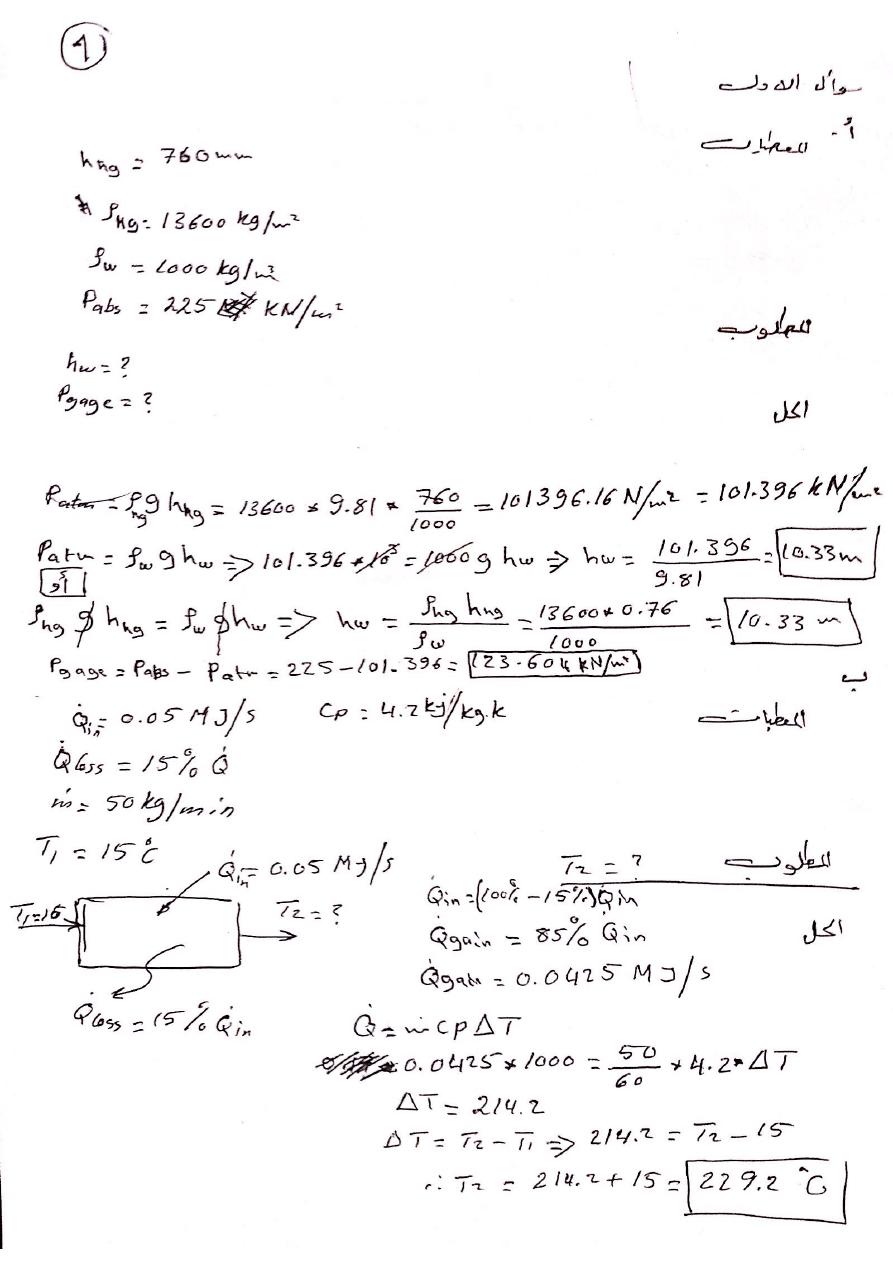 1
سؤال الاول
أ- المعطيات
hHg = 760mm
ρHg = 13600 kg/m²
ρw = 1000 kg/m³
Pabs = 225 KN/m²
المطلوب
hw = ?
Pgage = ?
الحل
Patm = ρHg g hHg = 13600 * 9.81 * 760/1000 = 101396.16 N/m² = 101.396 kN/m²
Patm = ρw g hw => 101.396 * 10³ = 1000 g hw => hw = 101.396/9.81 = 10.33m
أو
ρHg g hHg = ρw g hw => hw = ρHg hHg/ρw = 13600 * 0.76/1000 = 10.33 m
Pgage = Pabs - Patm = 225 - 101.396 = 123.604 kN/m²
ب
Q̇in = 0.05 MJ/s Cp = 4.2 kj/kg.k المعطيات
Q̇loss = 15% Q̇
ṁ = 50 kg/min
T1 = 15°C
المطلوب T2 = ?
Q̇in = 0.05 MJ/s
T1=15
T2 = ?
Q̇loss = 15% Q̇in
الحل
Q̇in = (100% - 15%) Q̇in
Q̇gain = 85% Q̇in
Q̇gain = 0.0425 MJ/s
Q̇ = ṁ cp ΔT
0.0425 * 1000 = 50/60 * 4.2 * ΔT
ΔT = 214.2
ΔT = T2 - T1 => 214.2 = T2 - 15
∴ T2 = 214.2 + 15 = 229.2 °C